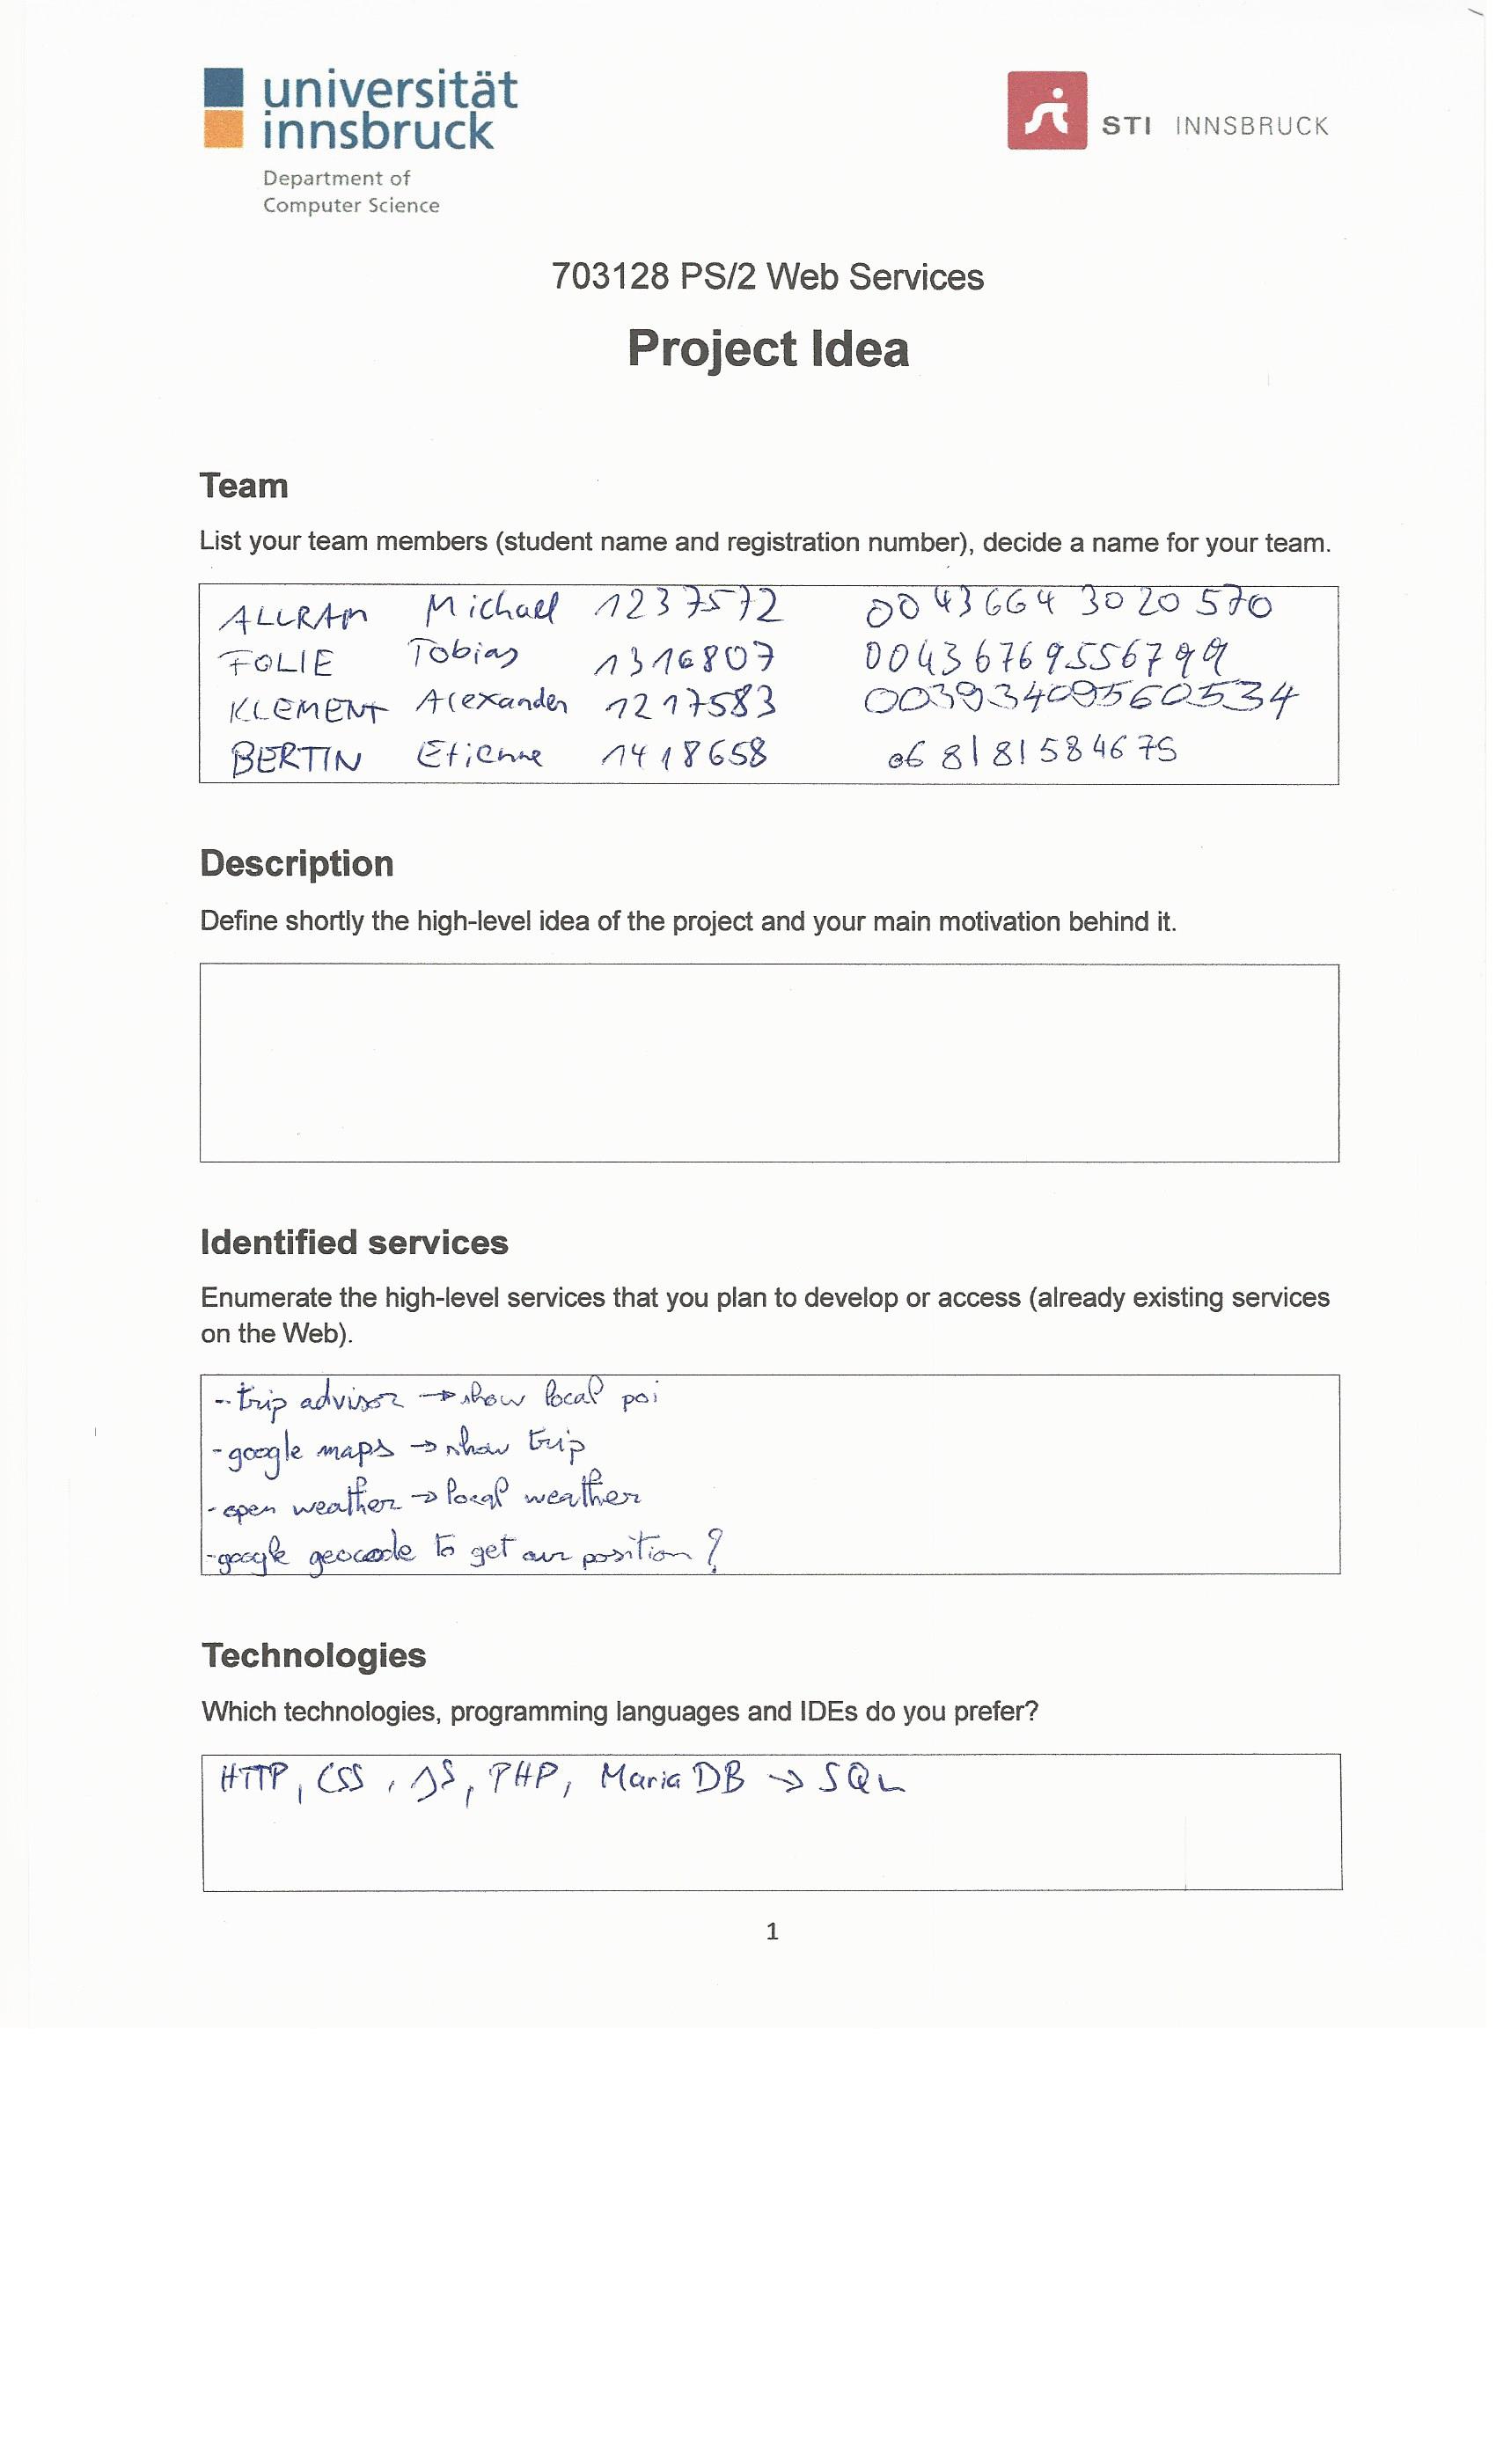 universität
innsbruck
Department of
Computer Science
STI INNSBRUCK
703128 PS/2 Web Services
Project Idea
Team
List your team members (student name and registration number), decide a name for your team.
ALLRAM Michael 1237572 0043664 3020 570
FOLIE Tobias 1316807 00436769556799
KLEMENT Alexander 1217583 00393409560534
BERTIN Etienne 1418658 068181584675
Description
Define shortly the high-level idea of the project and your main motivation behind it.
Identified services
Enumerate the high-level services that you plan to develop or access (already existing services
on the Web).
- trip advisor → show local poi
- google maps → show trip
- open weather → local weather
- google geocode to get our position ?
Technologies
Which technologies, programming languages and IDEs do you prefer?
HTTP, CSS, JS, PHP, Maria DB → SQL
1